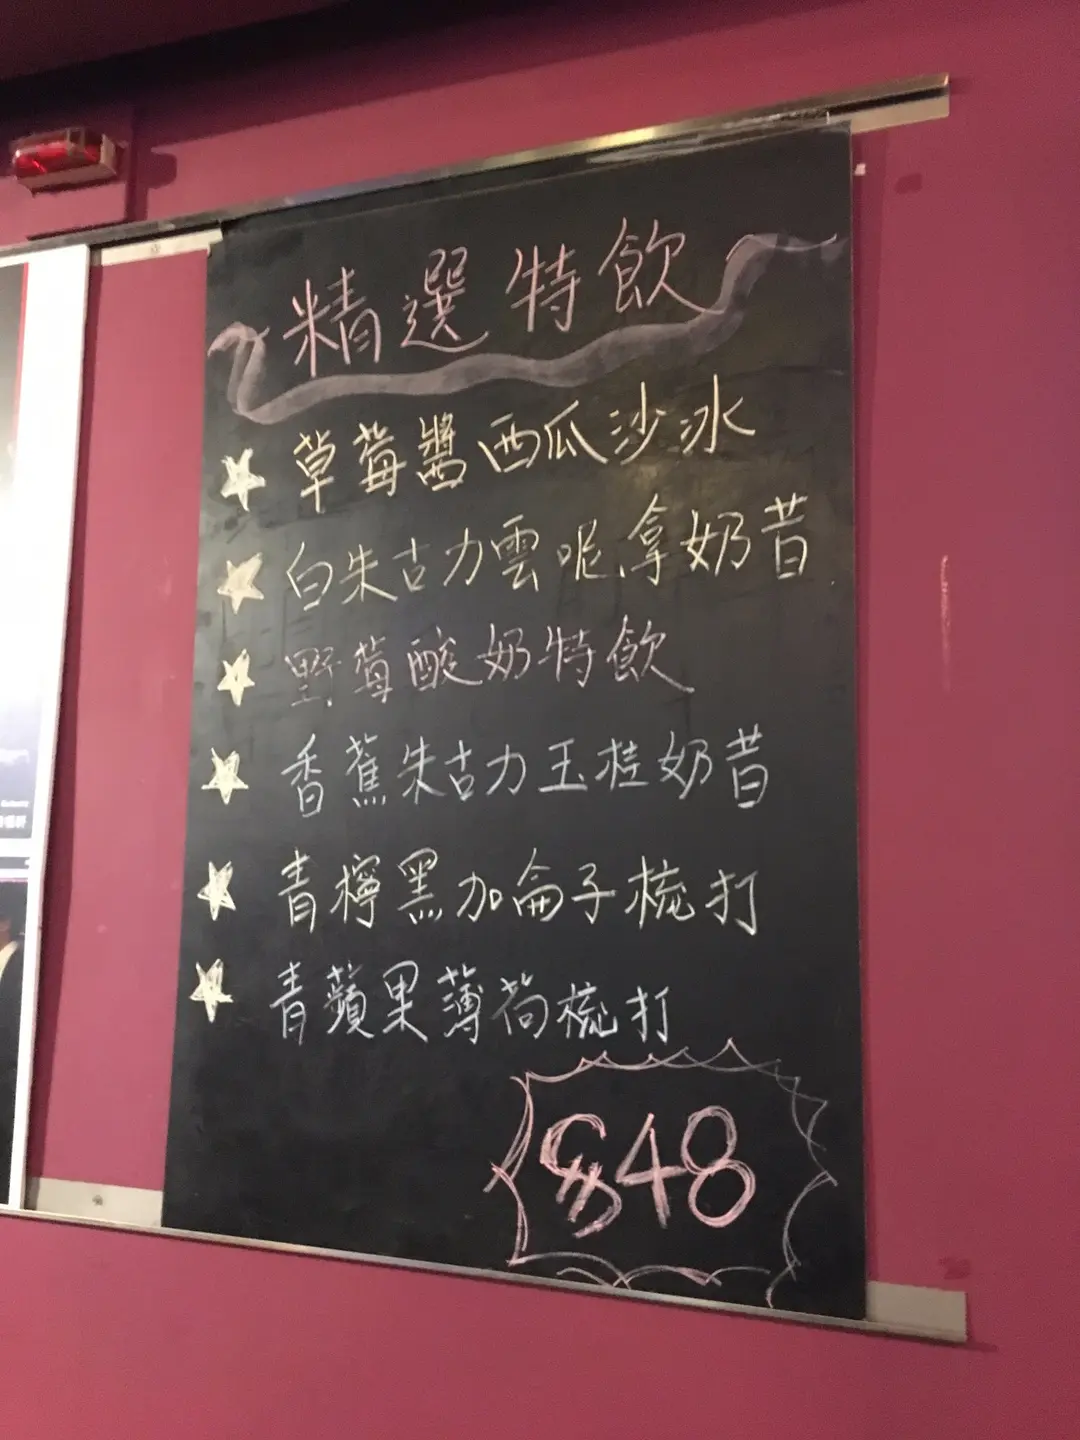 精選特飲
草莓醬西瓜沙冰
白朱古力雲呢拿奶昔
野莓酸奶特飲
香蕉朱古力玉桂奶昔
青檸黑加侖子梳打
青蘋果薄荷梳打
$48